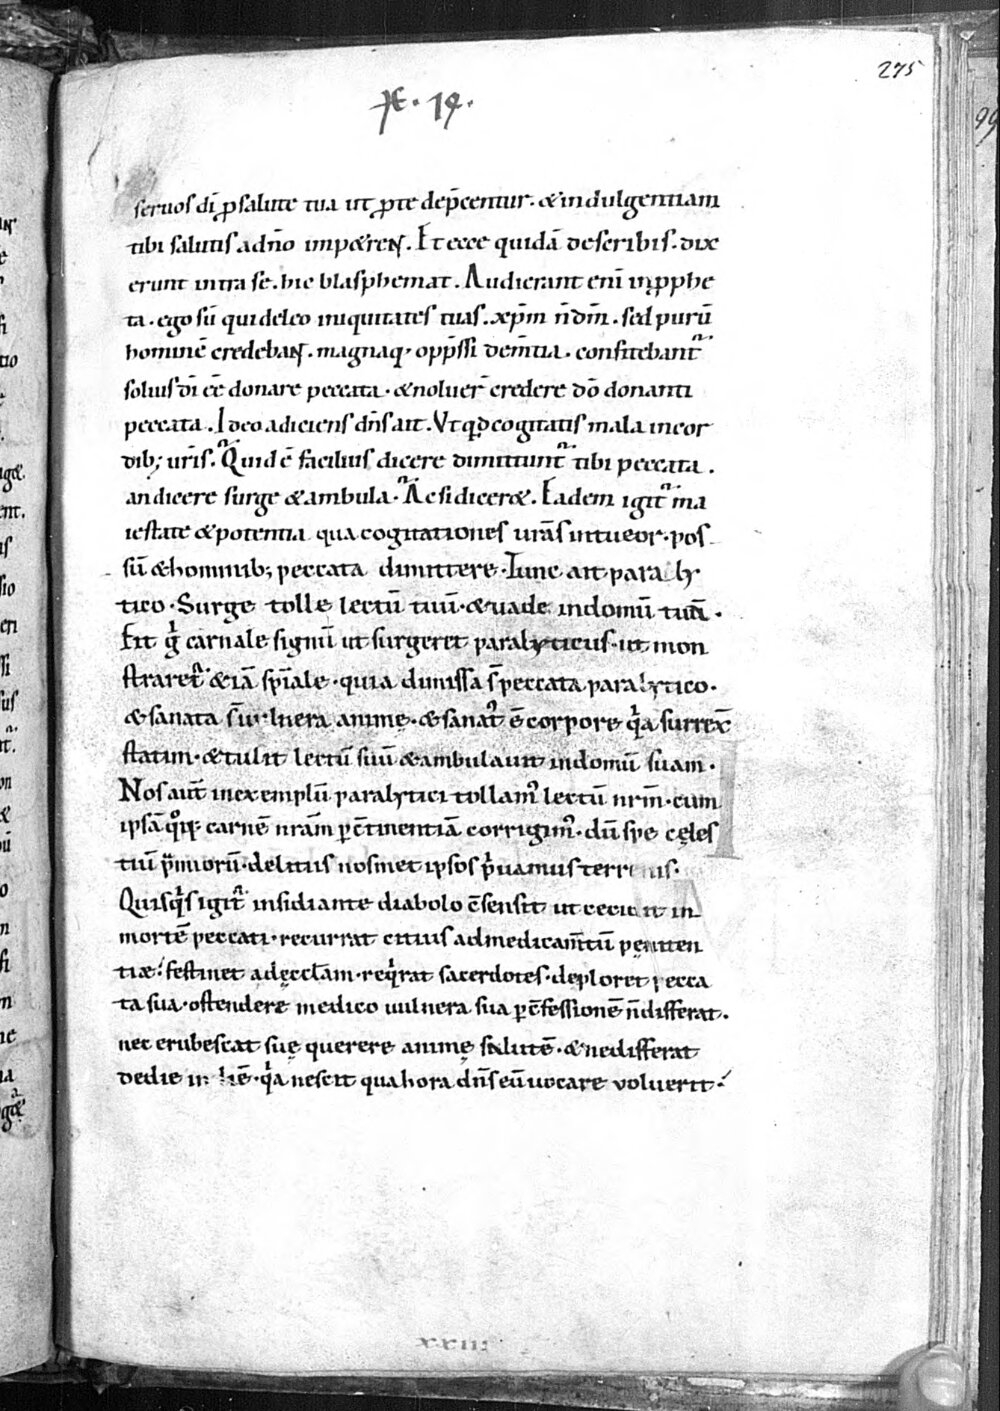 275
99
servos dī ꝓ salute tua ut ꝓ te dep̄centur. & indulgentiam
tibi salutis ad dn̄o imp&ren̄. Et ecce quidā de scribis. dix
erunt intra se. hic blasphemat. Audierant enī in ꝓphe
ta. ego sū qui deleo iniquitates tuas. xp̄m n̄ dm̄. sed purū
hominē credeban̄. magnaq; opp̄ssi dem̄tia. confitebant᷑
solius dī eē donare peccata. & noluer̄ credere dō donanti
peccata. Ideo adiciens dn̄s ait. Vt qd cogitatis mala in cor
dib; ur̄is. Quid ē facilius dicere dimittunt᷑ tibi peccata.
an dicere surge & ambula. Ac si dicer&. Eadem igit᷑ ma
iestate & potentia qua cogitationes urās intueor. pos
sū & hominib; peccata dimittere. Tunc ait paraly
tico. Surge tolle lectū tuū. & uade in domū tuā.
Fit g̊ carnale signū ut surgeret paralyticus. ut mon
straret᷑ & iā sp̄iale. quia dimissa s̄ peccata paralytico.
& sanata s̄ uulnera animę. & sanat᷒ ē corpore qa surrex̄
statim. & tulit lectū suū & ambulauit in domū suam.
Nos aut̄ in exemplū paralytici tollam᷒ lectū nr̄m. cum
ipsā qͦq; carnē nrām p c̄tinentiā corrigim᷒. dū spe cęles
tiū p̄miorū. delitiis nosmet ipsos pͥuamus terrenis.
Quisqͥs igit᷑ insidiante diabolo c̄sensit ut cecidit in
mortē peccati. recurrat citius ad medicam̄tū pęniten
tiæ. festinet ad ęccl̄am. reqͥrat sacerdotes. deploret pecca
ta sua. ostendere medico uulnera sua p c̄fessionē n̄ differat.
nec erubescat suę querere animę salutē. & ne differat
de die in diē. qa nescit qua hora dn̄s eū uocare voluerit.
xxiii